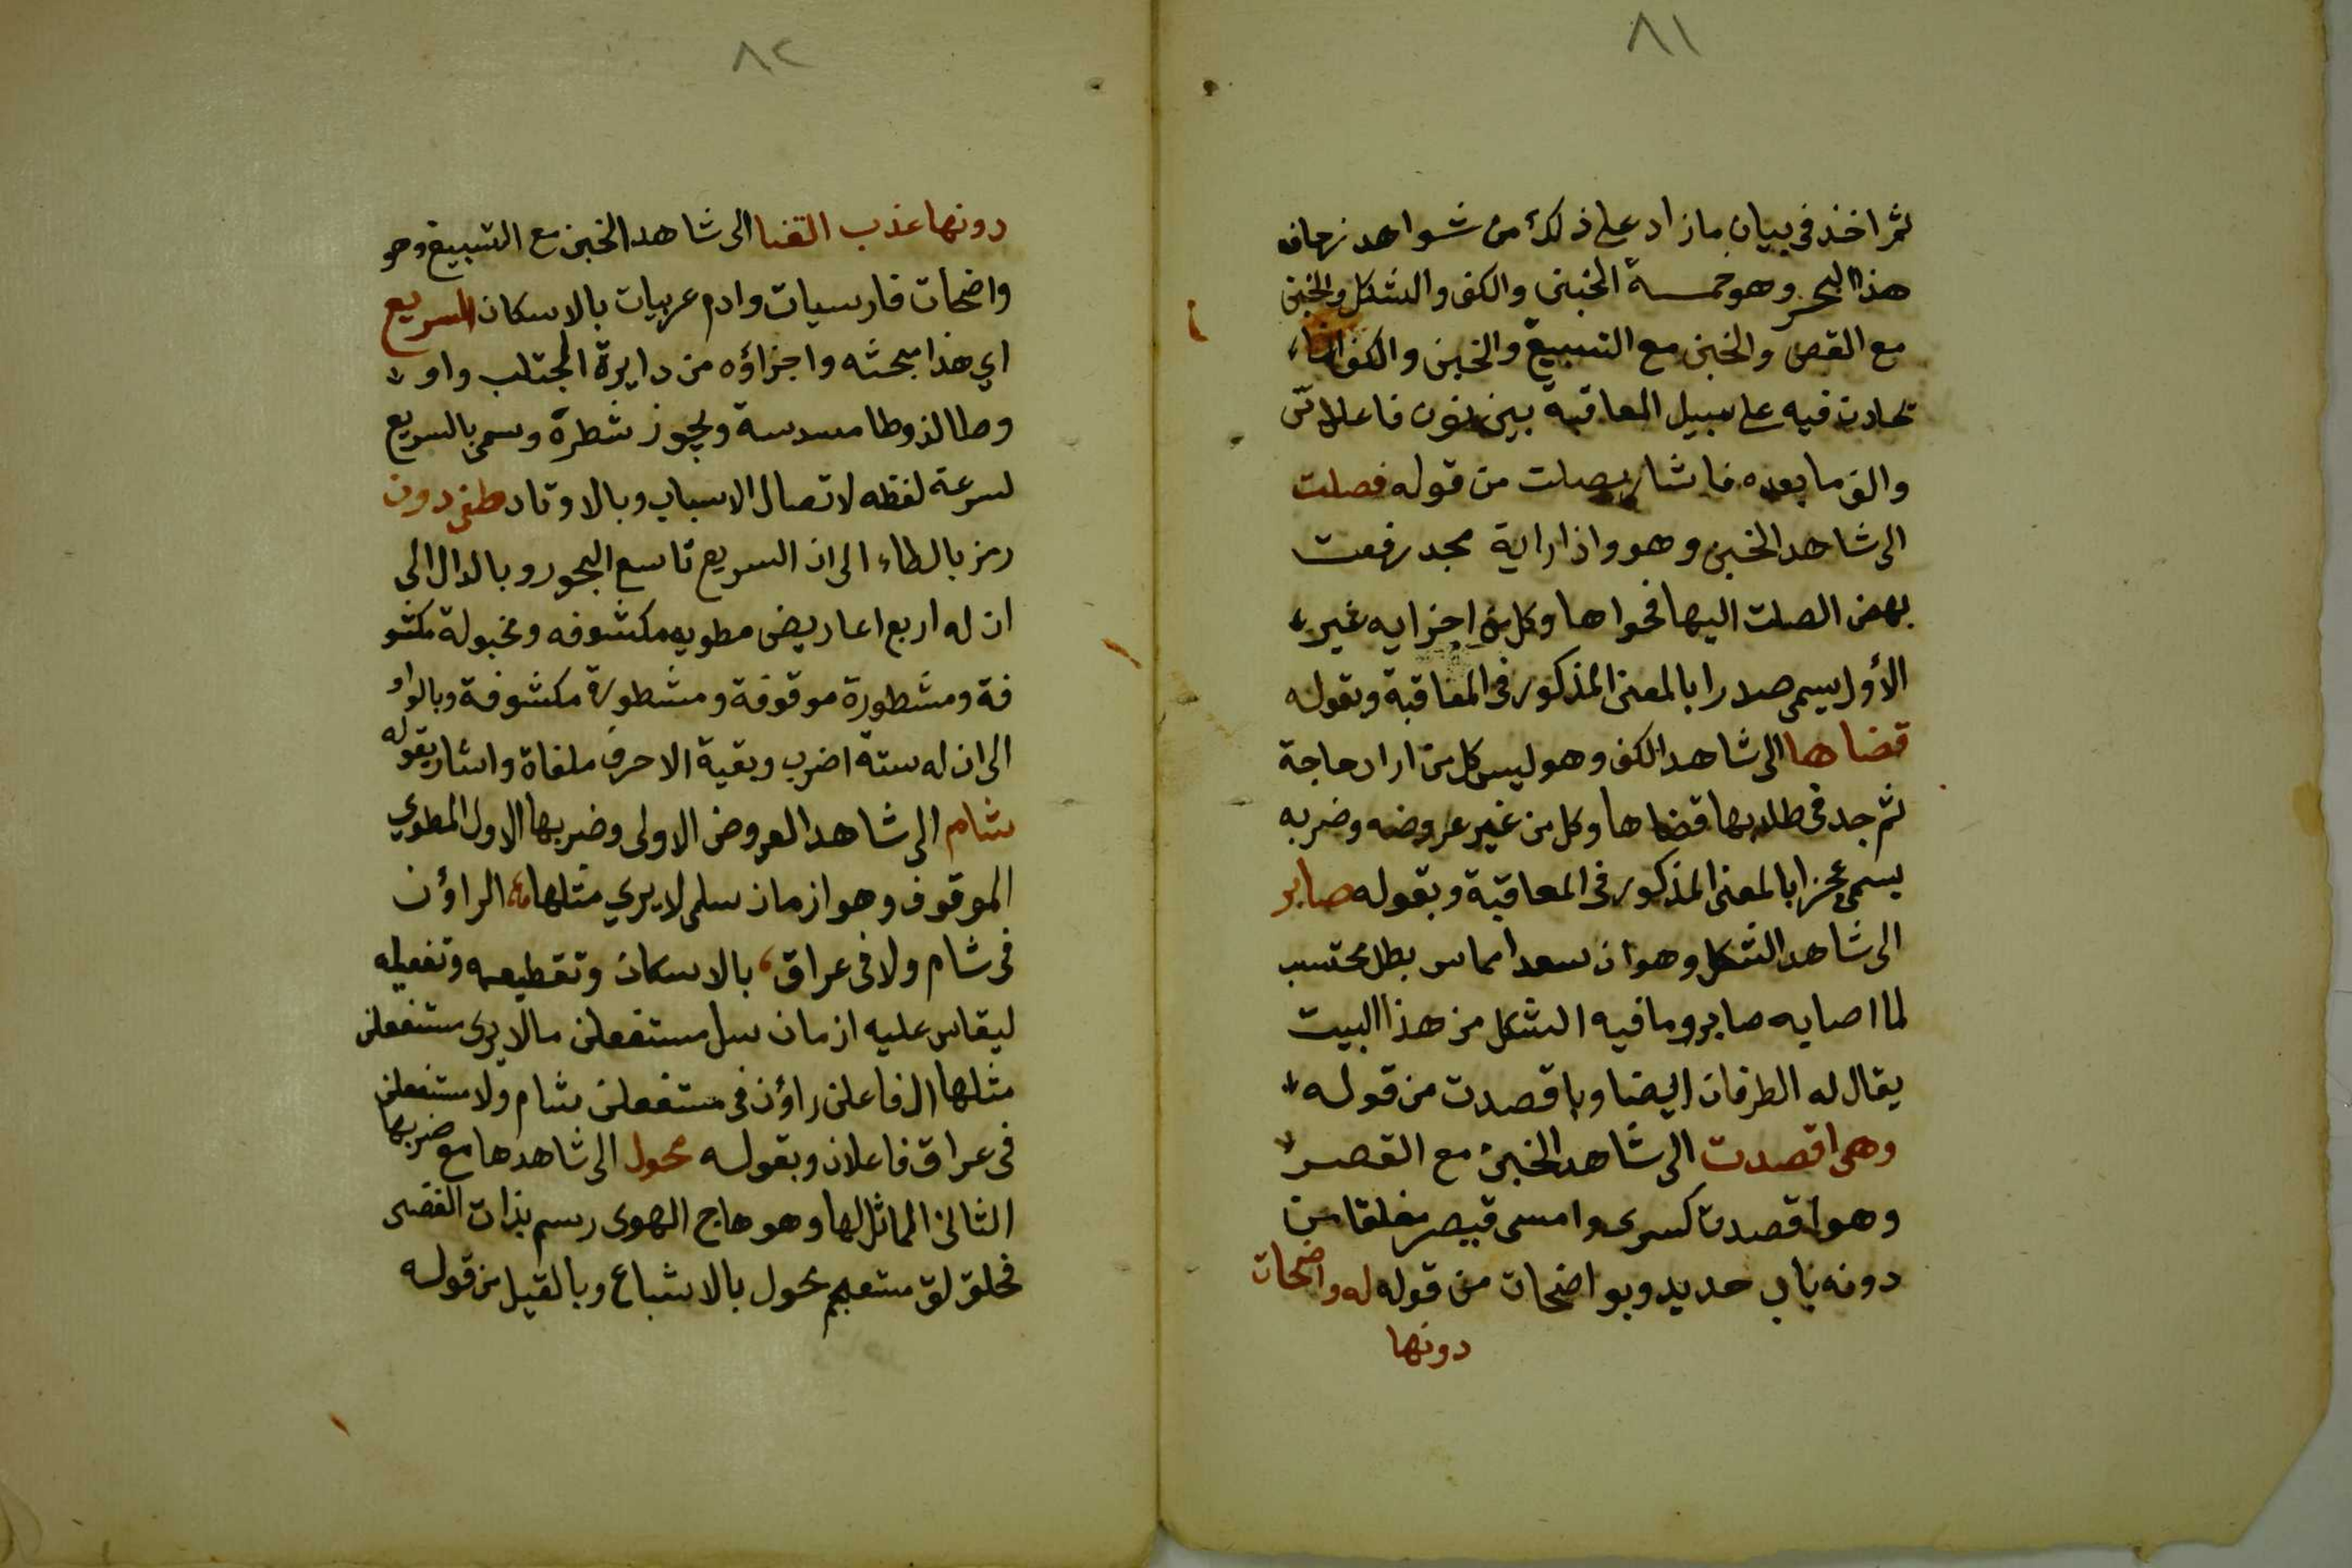 ٨١
ثم اخذ في بيان ما زاد على ذلك من شواهد زحاف
هذا البحر وهو خمسة الخبن والكف والشكل والخبن
مع القصر والخبن مع التسبيغ والخبن والكف انما
تحادث فيه على سبيل المعاقبة بين نون فاعلاتن
والف ما بعده فاشار بصلت من قوله فصلت
الى شاهد الخبن وهو واذا راية مجد رفعت
نهض الصلت اليها فحواها وكل من اجزايه غير
الأول يسمى صدرا بالمعنى المذكور في المعاقبة وبقوله
قضاها الى شاهد الكف وهو ليس كل من اراد حاجة
ثم جد في طلابها قضاها وكل من غير عروضه وضربه
يسمى عجزا بالمعنى المذكور في المعاقبة وبقوله صابر
الى شاهد الشكل وهو ان سعدا مماس بطل محتسب
لما اصابه صابر وما فيه الشكل من هذا البيت
يقال له الطرفان ايضا وباقصدت من قوله
وهي اقصدت الى شاهد الخبن مع القصر
وهو اقصدت كسرى وامسى قيصر مغلقا من
دونه باب حديد وبواضحات من قوله له واضحات
دونها
٨٢
دونها عذب القنا الى شاهد الخبن مع التسبيغ وهو
واضحات فارسيات وادم عربيات بالاسكان السريع
اي هذا مبحثه واجزاؤه من دايرة المجتلب واو
وطا الذوطا مسدسة ويجوز شطره وسمى بالسريع
لسرعة لفظه لاتصال الاسباب وبالاوتاد طغى دون
رمز بالطاء الى ان السريع تاسع البحور وبالدال الى
ان له اربع اعاريض مطويه مكشوفه ومخبولة مكشو
فة ومشطورة موقوفة ومشطورة مكشوفة وبالواو
الى ان له ستة اضرب وبقية الاحرف ملغاة واشار بقوله
شام الى شاهد العروض الاولى وضربها الاول المطوي
الموقوف وهو ازمان سلمى لا يري مثلها الراؤن
في شام ولا في عراق، بالاسكان وتقطيعه وتفعيله
ليقاس عليه ازمان سل مستفعلن ما لا يرى مستفعلن
مثلها ال فاعلن راؤن في مستفعلن شام ولا مستفعلن
في عراق فاعلان وبقوله محول الى شاهدها مع ضربها
الثاني المماثل لها وهو هاج الهوى رسم بذات الغضى
مخلولق مستعجم محول بالاشباع وبالقيل من قوله